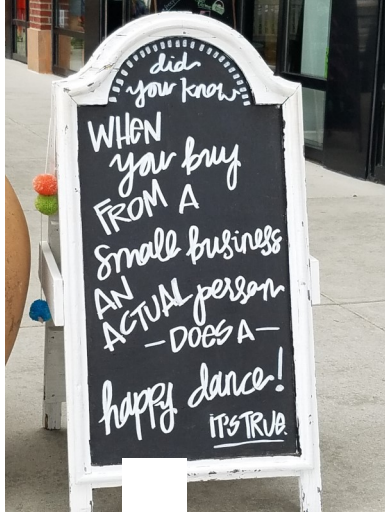 did
you know
WHEN
you buy
FROM A
small business
AN
ACTUAL person
—DOES A—
happy dance!
IT'S TRUE.